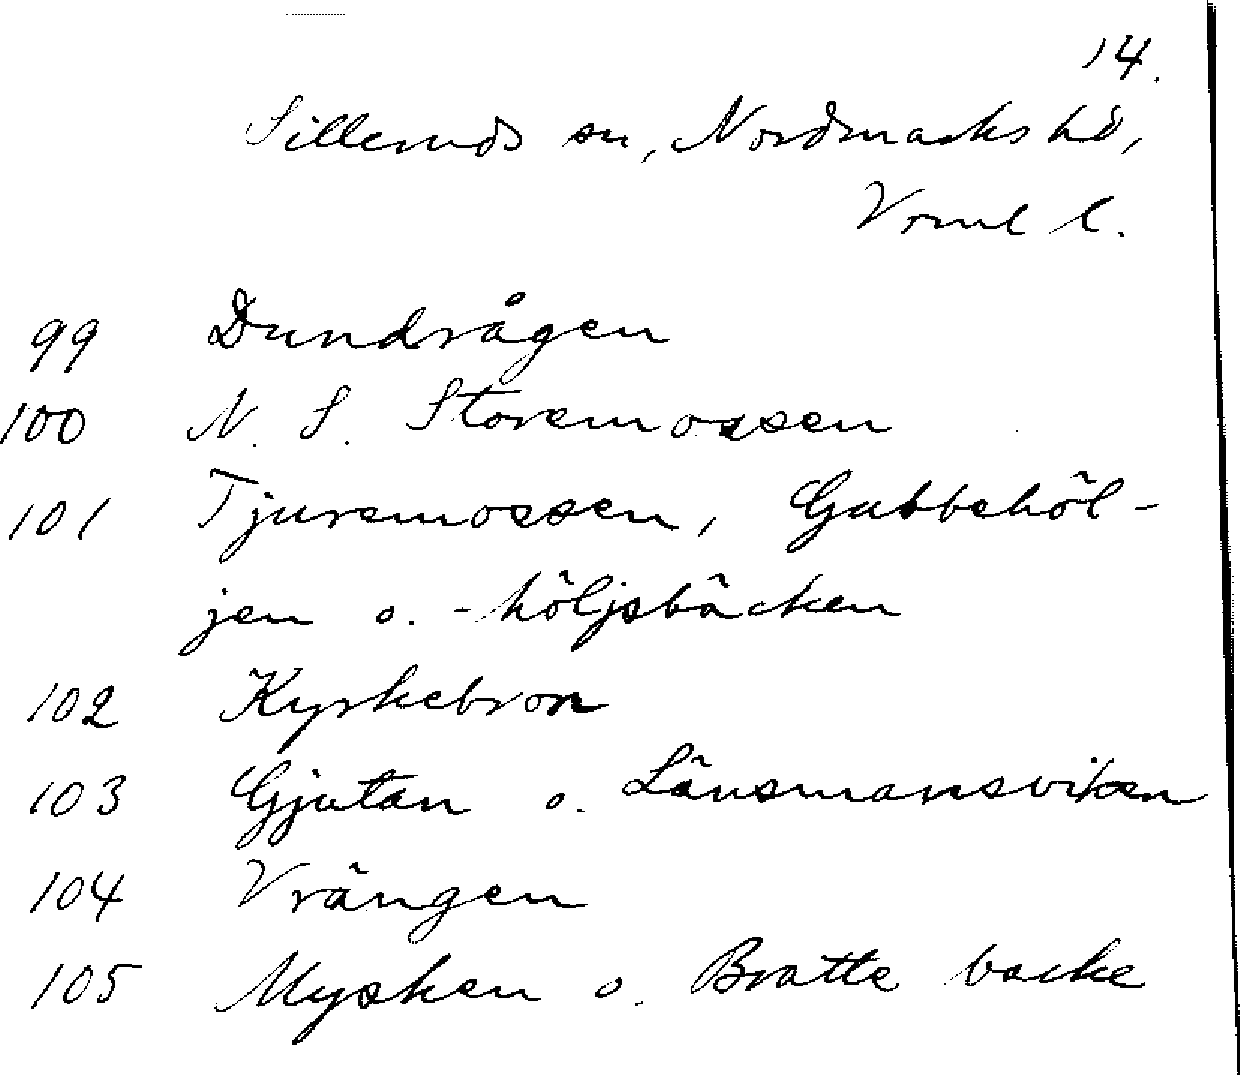 14.
Silleruds sn, Nordmarks hd,
Vrml l.
99 Dundrågen
100 N. S. Storemossen
101 Tjuremossen, Gubbehöl-
jen o. -höljsbäcken
102 Kyrkebron
103 Gjutan o. Länsmansviken
104 Vrängen
105 Mysken o. Bratte backe